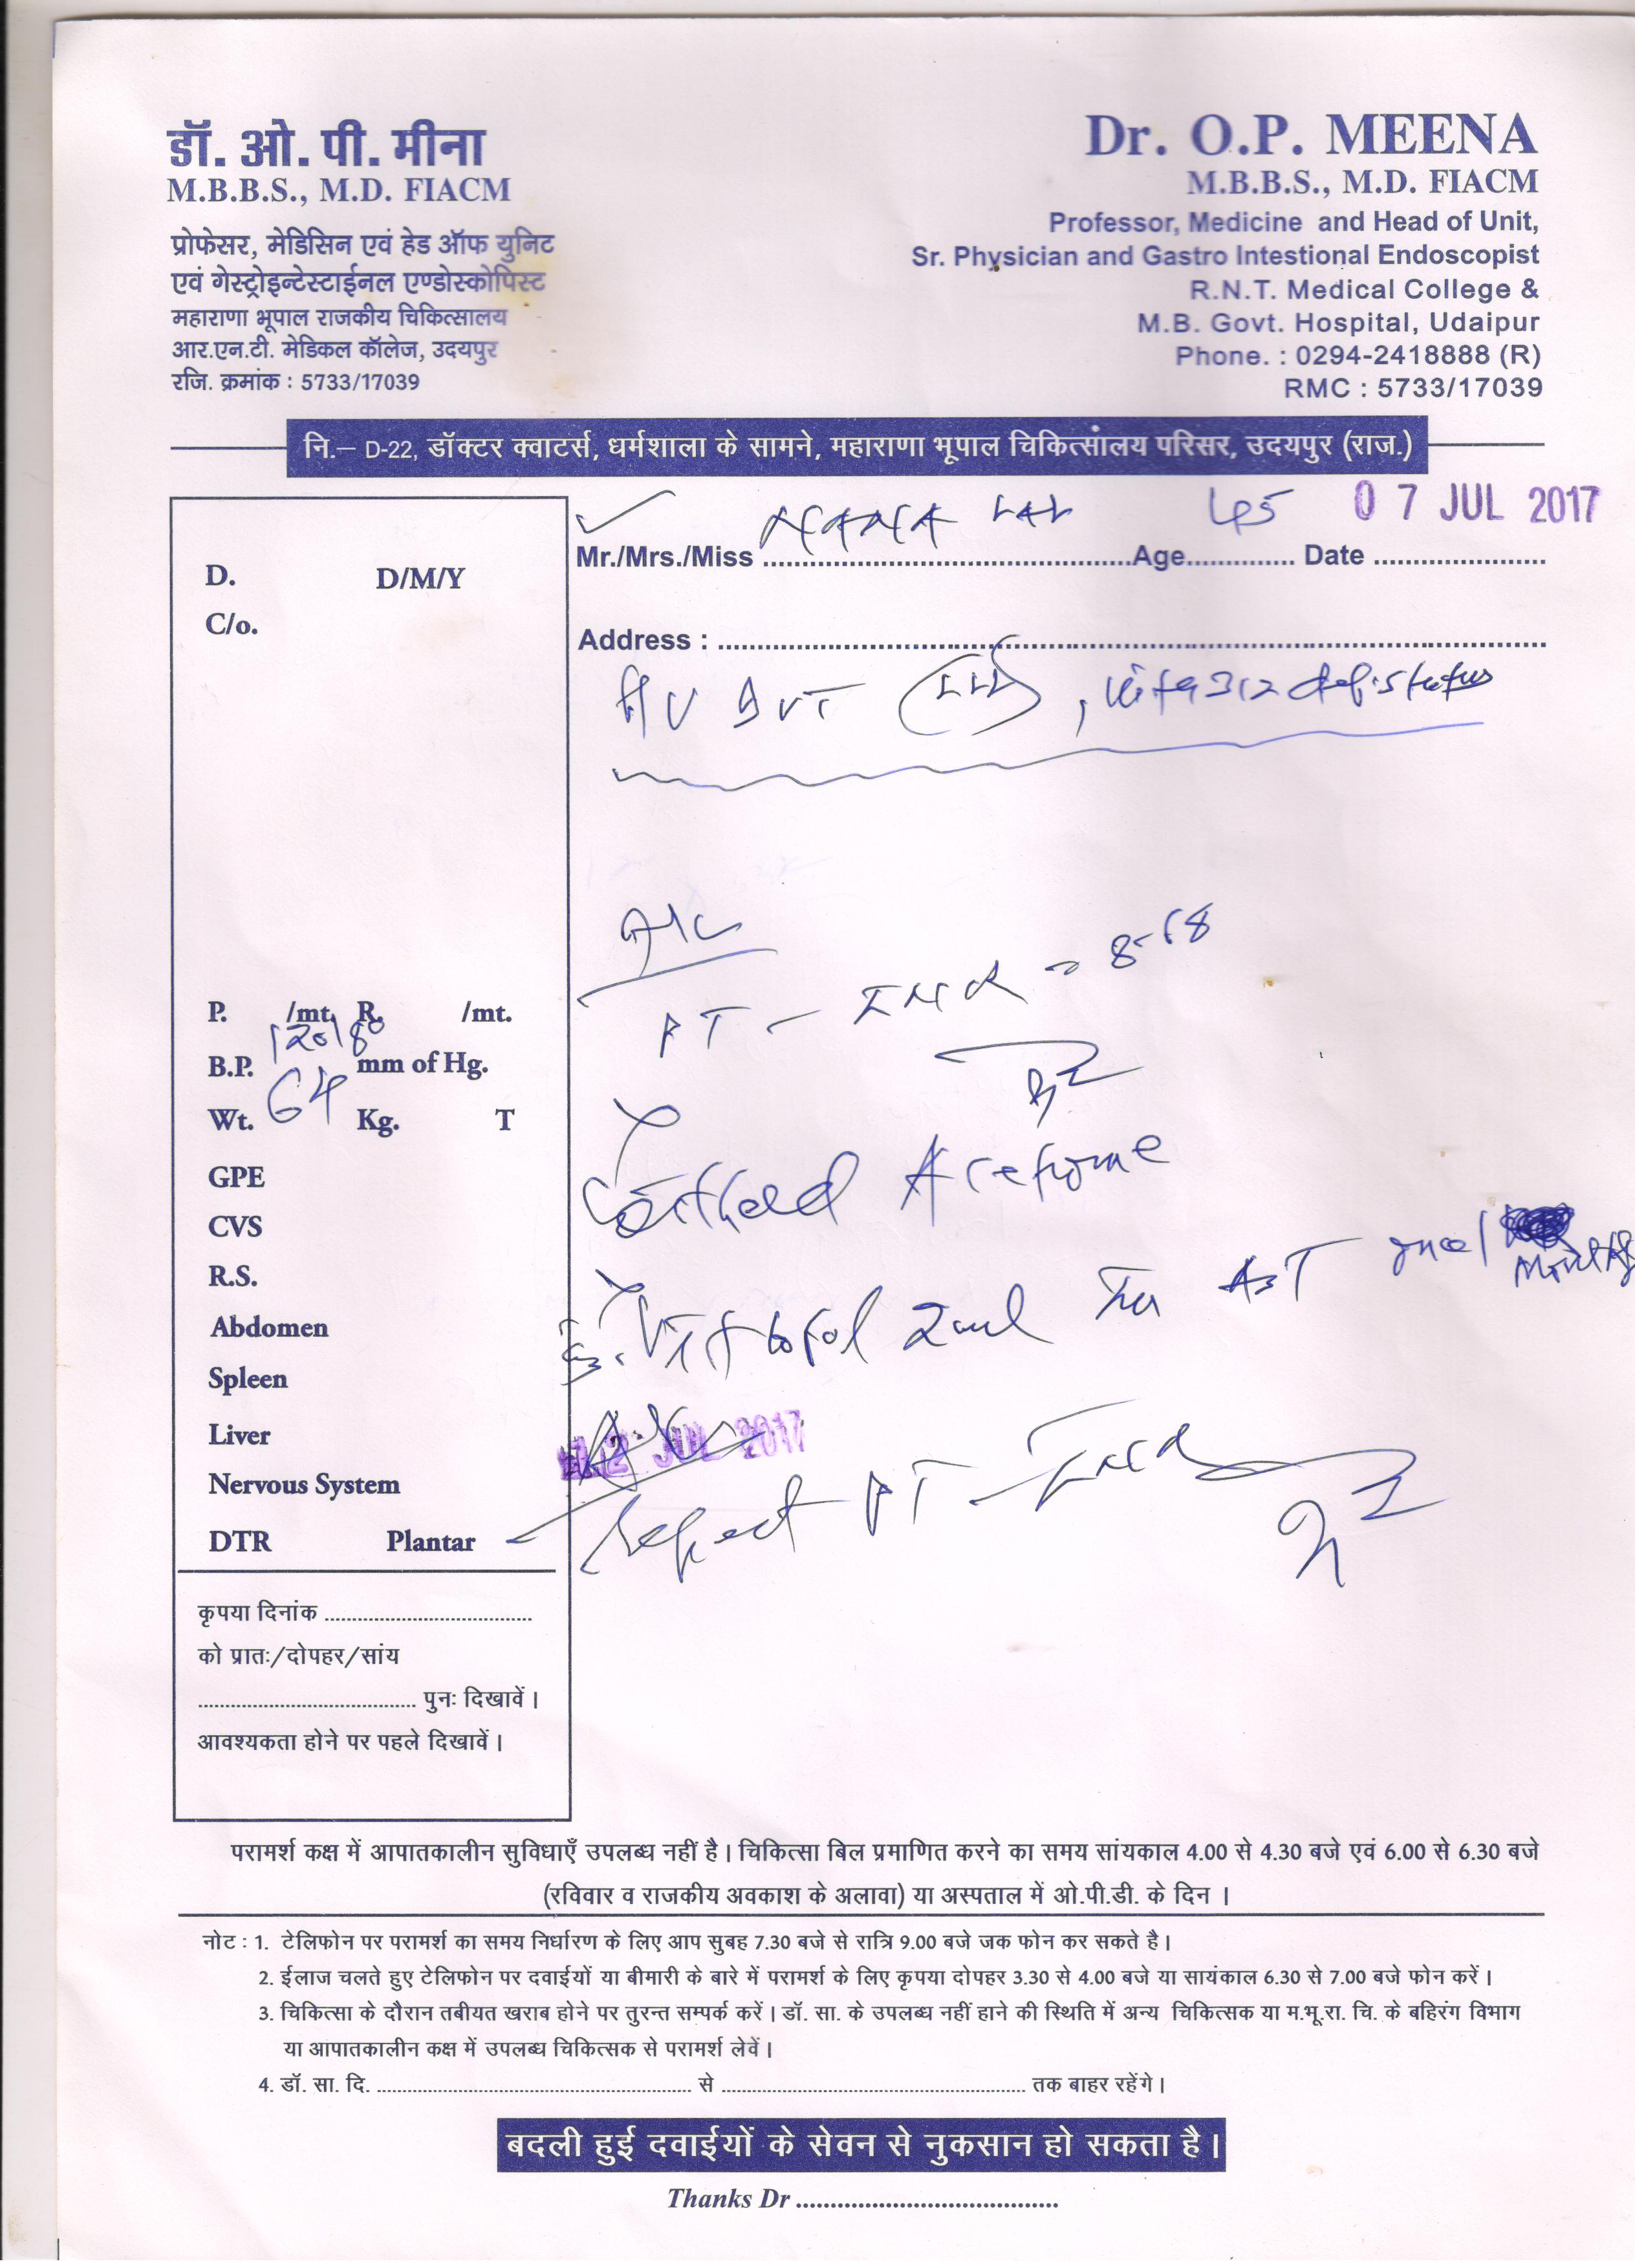 डॉ. ओ. पी. मीना
M.B.B.S., M.D. FIACM
प्रोफेसर, मेडिसिन एवं हेड ऑफ युनिट
एवं गेस्ट्रोइन्टेस्टाईनल एण्डोस्कोपिस्ट
महाराणा भूपाल राजकीय चिकित्सालय
आर.एन.टी. मेडिकल कॉलेज, उदयपुर
रजि. क्रमांक : 5733/17039
Dr. O.P. MEENA
M.B.B.S., M.D. FIACM
Professor, Medicine and Head of Unit,
Sr. Physician and Gastro Intestional Endoscopist
R.N.T. Medical College &
M.B. Govt. Hospital, Udaipur
Phone. : 0294-2418888 (R)
RMC : 5733/17039
नि.– D-22, डॉक्टर क्वाटर्स, धर्मशाला के सामने, महाराणा भूपाल चिकित्सालय परिसर, उदयपुर (राज.)
Mr./Mrs./Miss NANA LAL Age 45 Date 07 JUL 2017
Address :
D. D/M/Y
C/o.
DVT
PT - INR
P. /mt. R. /mt.
B.P. 120/80 mm of Hg.
Wt. 64 Kg. T
GPE
CVS
R.S.
Abdomen
Spleen
Liver
Nervous System
DTR Plantar
Acetrome
2ml
JUL 2017
Repeat PT - INR
कृपया दिनांक
को प्रातः/दोपहर/सांय
पुनः दिखावें।
आवश्यकता होने पर पहले दिखावें।
परामर्श कक्ष में आपातकालीन सुविधाएँ उपलब्ध नहीं है। चिकित्सा बिल प्रमाणित करने का समय सांयकाल 4.00 से 4.30 बजे एवं 6.00 से 6.30 बजे
(रविवार व राजकीय अवकाश के अलावा) या अस्पताल में ओ.पी.डी. के दिन ।
नोट : 1. टेलिफोन पर परामर्श का समय निर्धारण के लिए आप सुबह 7.30 बजे से रात्रि 9.00 बजे जक फोन कर सकते है।
2. ईलाज चलते हुए टेलिफोन पर दवाईयों या बीमारी के बारे में परामर्श के लिए कृपया दोपहर 3.30 से 4.00 बजे या सायंकाल 6.30 से 7.00 बजे फोन करें ।
3. चिकित्सा के दौरान तबीयत खराब होने पर तुरन्त सम्पर्क करें । डॉ. सा. के उपलब्ध नहीं हाने की स्थिति में अन्य चिकित्सक या म.भू.रा. चि. के बहिरंग विभाग
या आपातकालीन कक्ष में उपलब्ध चिकित्सक से परामर्श लेवें ।
4. डॉ. सा. दि. से तक बाहर रहेंगे।
बदली हुई दवाईयों के सेवन से नुकसान हो सकता है।
Thanks Dr